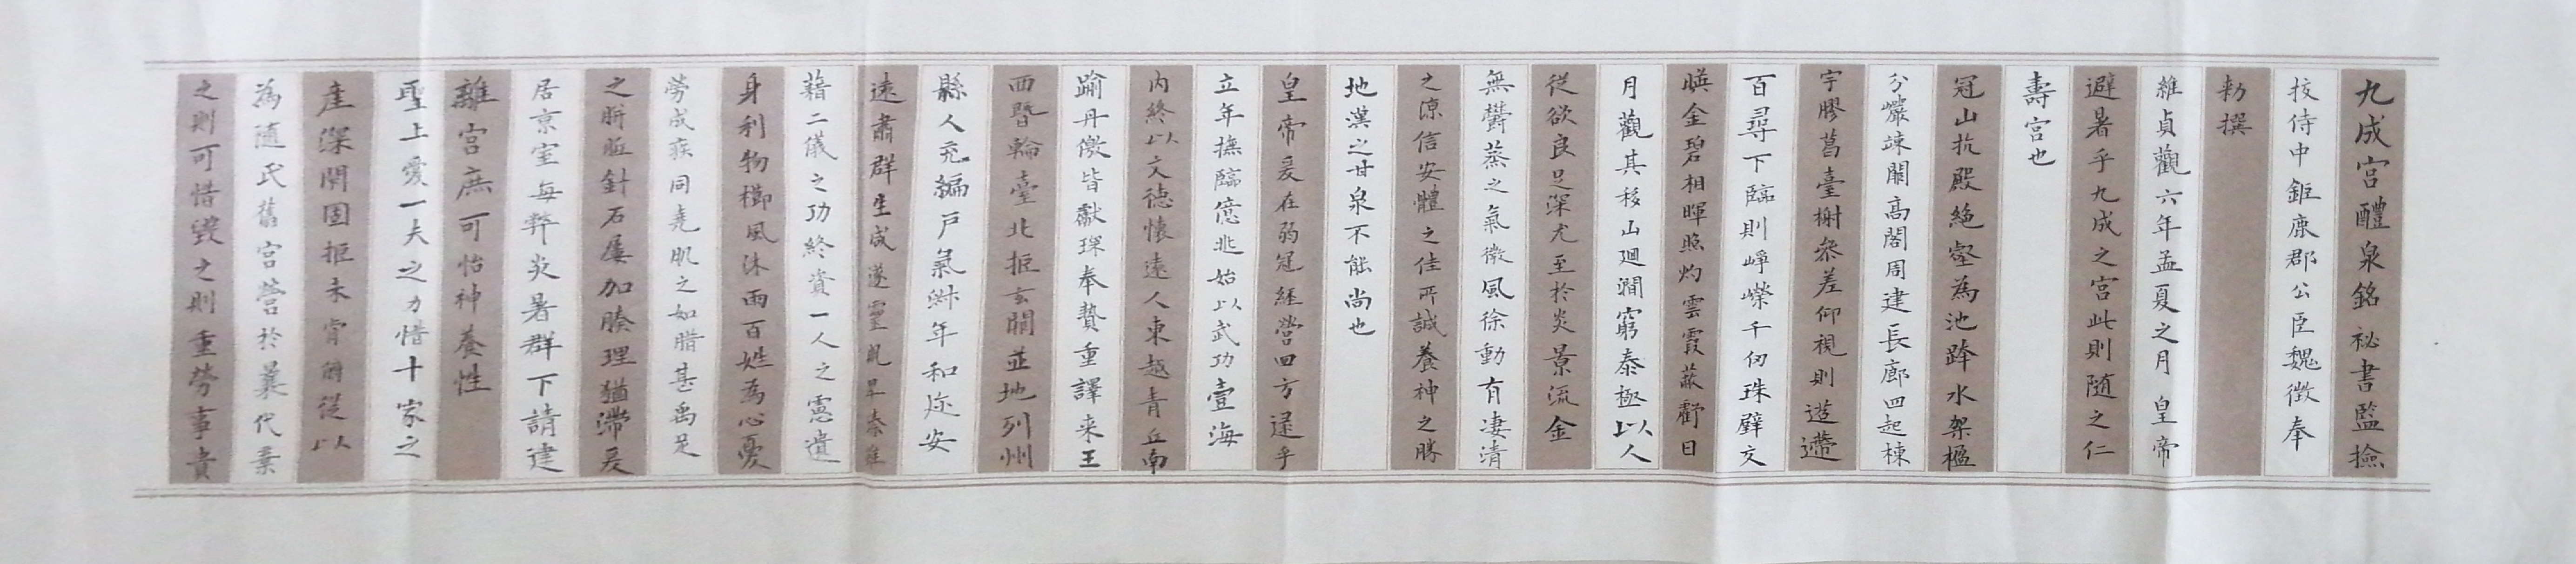 九成宮醴泉銘祕書監撿
挍侍中鉅鹿郡公臣魏徵奉
勑撰
維貞觀六年孟夏之月皇帝
避暑乎九成之宮此則隨之仁
壽宮也
冠山抗殿絕壑為池跨水架楹
分巖竦闕高閣周建長廊四起棟
宇膠葛臺榭叅差仰視則迢遰
百尋下臨則崢嶸千仞珠璧交
暎金碧相暉照灼雲霞蔽虧日
月觀其移山迴澗窮泰極以人
從欲良足深尤至於炎景流金
無欝蒸之氣微風徐動有凄清
之凉信安體之佳所誠養神之勝
地漢之甘泉不能尚也
皇帝爰在弱冠経營四方逯乎
立年撫臨億兆始以武功壹海
內終以文德懷遠人東越青丘南
踰丹儌皆獻琛奉贄重譯来王
西暨輪臺北拒玄關並地列州
縣人充編戶氣淑年和迩安
遠肅群生咸遂靈貺畢臻雖
藉二儀之功終資一人之慮遺
身利物櫛風沐雨百姓為心憂
勞成疾同堯肌之如腊甚禹足
之胼胝針石屢加腠理猶滯爰
居京室每弊炎暑群下請建
離宮庶可怡神養性
聖上愛一夫之力惜十家之
產深閉固拒未肯俯從以
為隨氏舊宮營於曩代棄
之則可惜毀之則重勞事貴